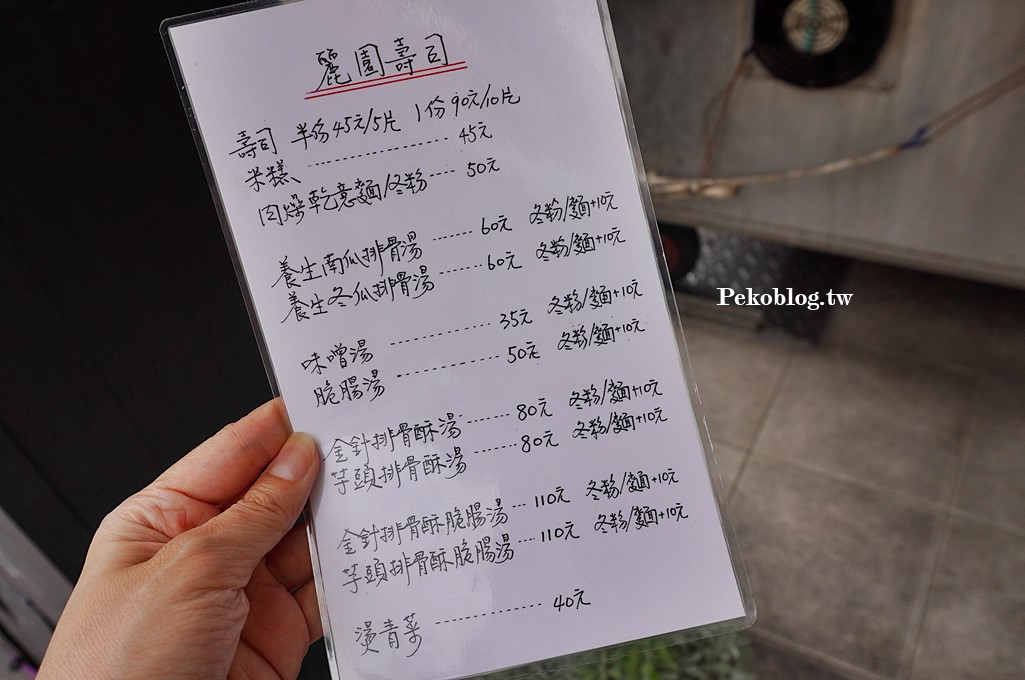 麗園壽司
壽司 半份45元/5片 1份90元/10片
米糕 ---------------- 45元
肉燥乾意麵/冬粉 ---- 50元
養生南瓜排骨湯 ------ 60元 冬粉/麵+10元
養生冬瓜排骨湯 ------ 60元 冬粉/麵+10元
味噌湯 -------------- 35元 冬粉/麵+10元
脆腸湯 -------------- 50元 冬粉/麵+10元
金針排骨酥湯 ------ 80元 冬粉/麵+10元
芋頭排骨酥湯 ------ 80元 冬粉/麵+10元
金針排骨酥脆腸湯 --- 110元 冬粉/麵+10元
芋頭排骨酥脆腸湯 --- 110元 冬粉/麵+10元
燙青菜 ------------ 40元
Pekoblog.tw